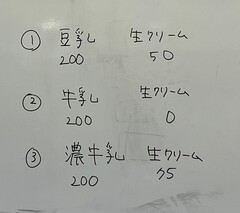 ① 豆乳 生クリーム
200 50
② 牛乳 生クリーム
200 0
③ 濃牛乳 生クリーム
200 75